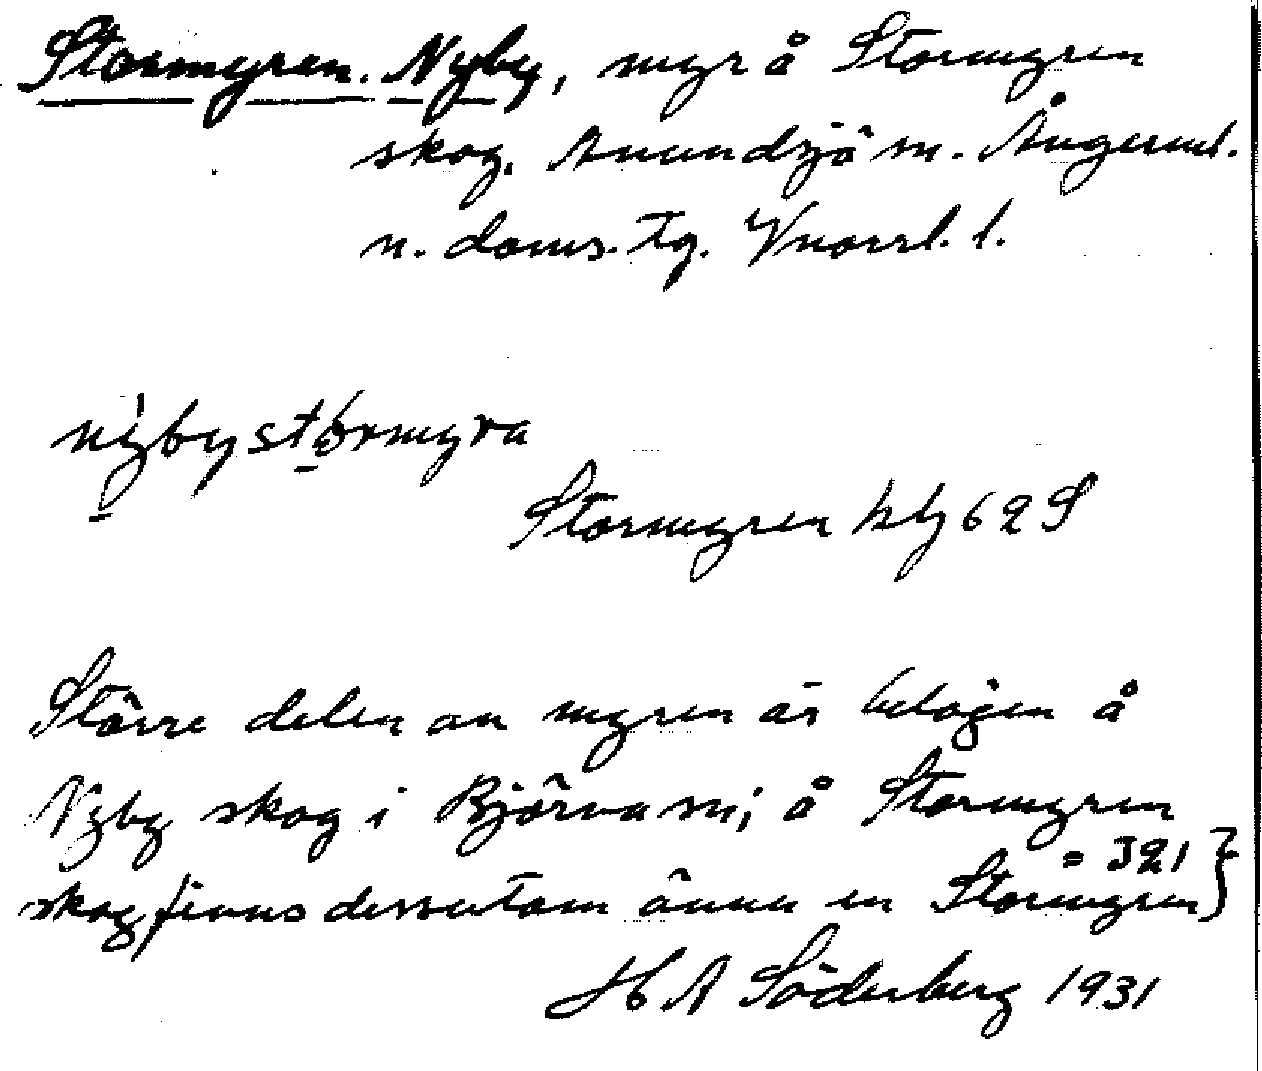 Stormyren. Nyby, myr å Stormyren
skog. Anundsjö sn. Ångerml.
n. doms. tg. Vnorrl. l.
nýbystórmyra
Stormyren blz 62 S
Större delen av myren är belägen å
Nyby skog i Björna sn; å Stormyren
skog finns dessutom ännu en Stormyren = 321 }
H A Söderberg 1931